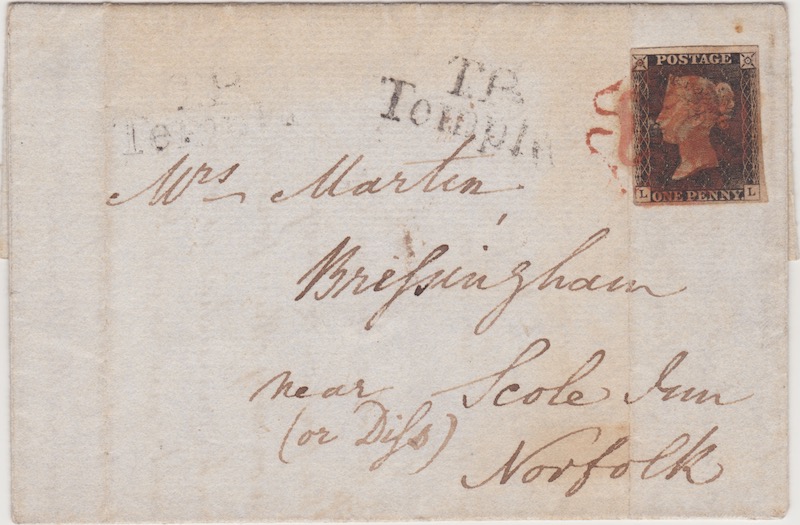 T.P.
Temple
POSTAGE
L ONE PENNY L
Mrs Martin,
Breſsingham
near Scole Inn
(or Diſs)
Norfolk